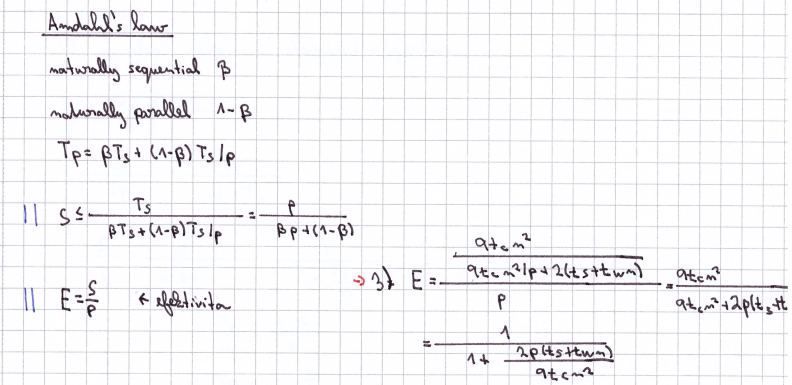 Amdahl's law
naturally sequential β
naturally parallel 1-β
Tp = βTs + (1-β) Ts/p
|| S ≤ Ts / (βTs + (1-β)Ts/p) = p / (βp + (1-β))
|| E = S/p ← efektivita
→ 3) E = (9tcn² / (9tcn²/p + 2(ts + twn))) / p = 9tcn² / (9tcn² + 2p(ts + t
= 1 / (1 + 2p(ts + twn) / 9tcn²)